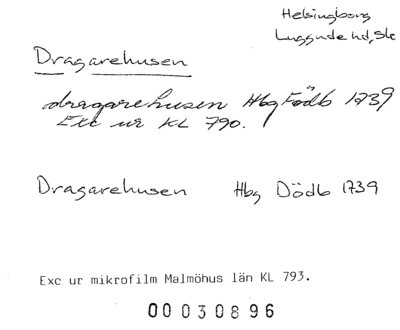 Helsingborg
Luggude hd, Sk
Dragarehusen
dragarehusen Hbg Födb 1739
Exc ur KL 790.
Dragarehusen Hbg Dödb 1739
Exc ur mikrofilm Malmöhus län KL 793.
00030896